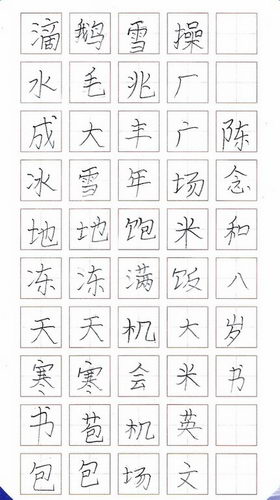 滴水成冰地冻天寒书包
鹅毛大雪地冻天寒苞包
雪兆丰年饱满机会机场
操厂广场米饭大米英文
陈念和八岁书